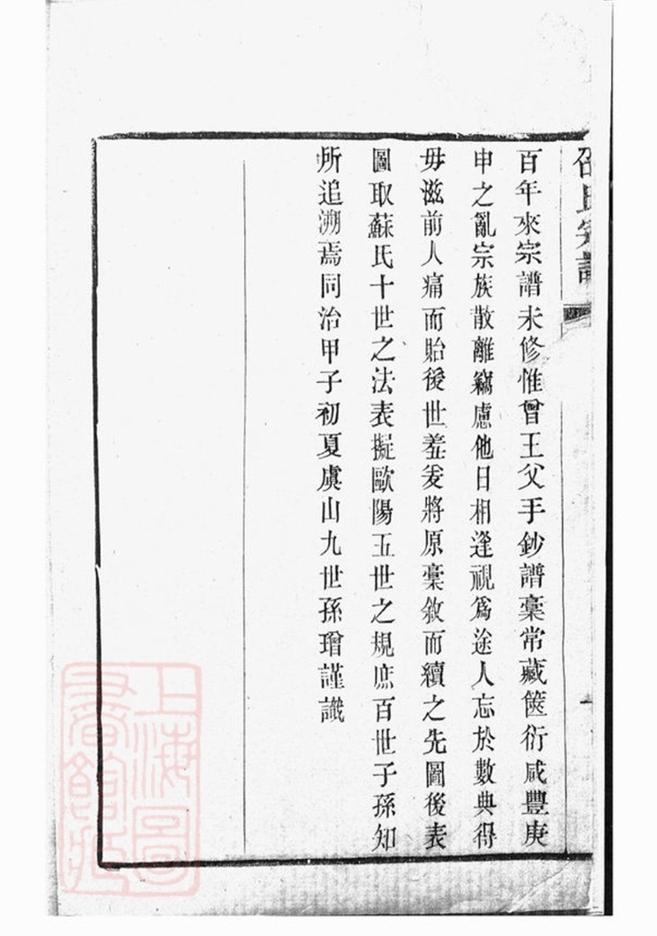 邵氏宗譜
百年來宗譜未修惟曾王父手鈔譜稾常藏篋衍咸豐庚
申之亂宗族散離竊慮他日相逢視爲途人忘於數典得
毋滋前人痛而貽後世羞爰將原稾敘而續之先圖後表
圖取蘇氏十世之法表擬歐陽五世之規庶百世子孫知
所追溯焉同治甲子初夏虞山九世孫璔謹識
上海圖
書館藏